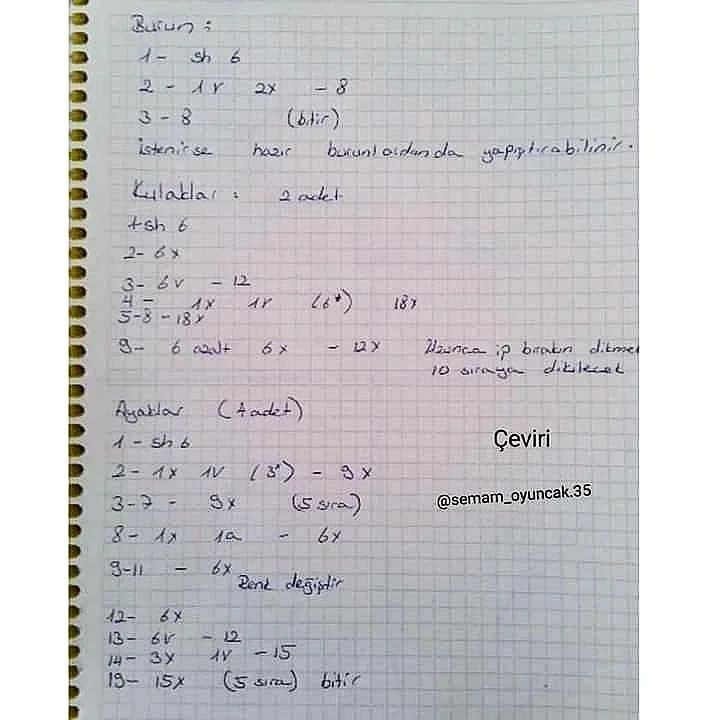 Burun :
1- sh 6
2- 1v 2x - 8
3 - 8 (bitir)
İstenirse hazır burunlardanda yapıştırabilinir.
Kulaklar : 2 adet
1 sh 6
2- 6x
3- 6v - 12
4 - 1x 1v (6*) 18x
5-8 - 18x
9- 6 azalt 6x - 12x Uzunca ip bırakın dikmek
10 sıraya dikilecek
Ayaklar (4 adet)
1 - sh 6
Çeviri
2- 1x 1v (3*) - 9x
@semam_oyuncak.35
3-7 - 9x (5 sıra)
8- 1x 1a - 6x
9-11 - 6x
Renk değiştir
12- 6x
13- 6v - 12
14- 3x 1v - 15
19- 15x (5 sıra) bitir